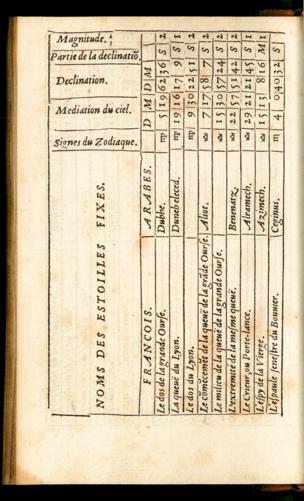 NOMS DES ESTOILLES FIXES.
Signes du Zodiaque.
Mediation du ciel.
Declination.
Partie de la declinatiõ
Magnitude.
FRANCOIS. ARABES. D M D M
Le dos de la grande Ourſe. Dubhe. ♍ 5 19 62 36 S 2
La queuë du Lyon. Duneb eleced. ♍ 19 16 17 9 S 1
Le dos du Lyon. ♍ 9 30 22 51 S 2
Le cõmẽcemẽt de la queuë de la grãde Ourſe. Aliot. ♎ 7 17 58 7 S 2
Le milieu de la queuë de la grande Ourſe. ♎ 15 30 57 24 S 2
L'extremité de la meſme queuë. Benenatz, ♎ 22 57 51 42 S 2
Le Crieur, ou Porte-lance. Alramech. ♎ 29 21 21 45 S 1
L'eſpy de la Vierge. Azimech. ♎ 15 13 8 16 M 1
L'eſpaule ſeneſtre du Bouuier. Ceginus. ♏ 4 0 40 32 S